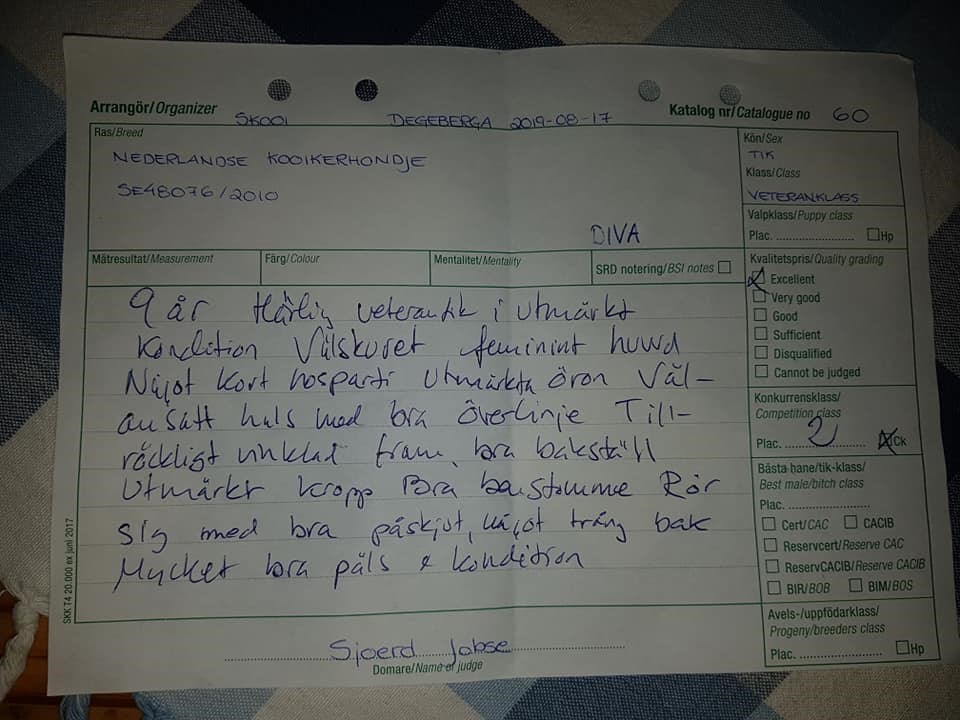 Arrangör/Organizer SKOOI DEGEBERGA 2019-08-17 Katalog nr/Catalogue no 60
Ras/Breed
NEDERLANDSE KOOIKERHONDJE
SE48076/2010
DIVA
Kön/Sex
TIK
Klass/Class
VETERANKLASS
Valpklass/Puppy class
Plac. Hp
Mätresultat/Measurement Färg/Colour Mentalitet/Mentality SRD notering/BSI notes
Kvalitetspris/Quality grading
Excellent
Very good
Good
Sufficient
Disqualified
Cannot be judged
9 år Härlig veterantik i utmärkt
Kondition Välskuret feminint huvud
Något kort nosparti Utmärkta öron Väl-
ansatt hals med bra överlinje Till-
räckligt vinklad fram, bra bakställ
Utmärkt kropp Bra benstomme Rör
sig med bra påskjut, något trång bak
Mycket bra päls & kondition
Konkurrensklass/
Competition class
Plac. 2 Ck
Bästa hane/tik-klass/
Best male/bitch class
Plac.
Cert/CAC CACIB
Reservcert/Reserve CAC
ReservCACIB/Reserve CACIB
BIR/BOB BIM/BOS
Avels-/uppfödarklass/
Progeny/breeders class
Plac. Hp
Sjoerd Jobse
Domare/Name of judge
SKK T4 20.000 ex juni 2017